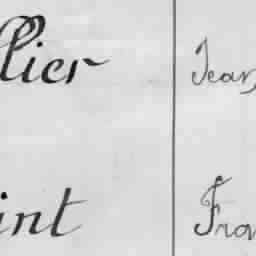 llier Jean
int Fran